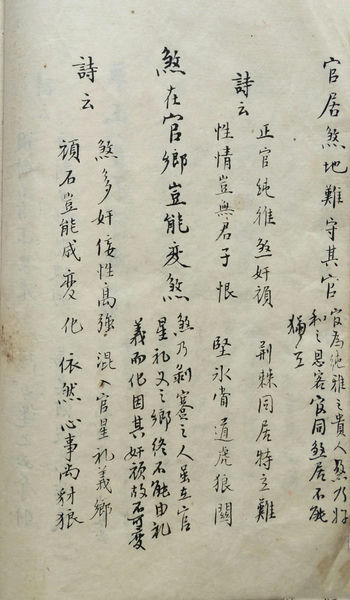 官居煞地難守其官
官為純雅之貴人煞乃奸
之思容官同煞居不能
獨立
詩云
正官純雅煞奸頑 荊棘同居特立難
性情豈無君子恨 堅冰當道虎狼關
煞在官鄉豈能變煞
煞乃剝盡之人虽在官
星礼义之鄉終不能由礼
義而化因其奸頑故不可變
詩云
煞多奸佞性高強 混入官星礼義鄉
頑石豈能成變化 依然心事尚豺狼